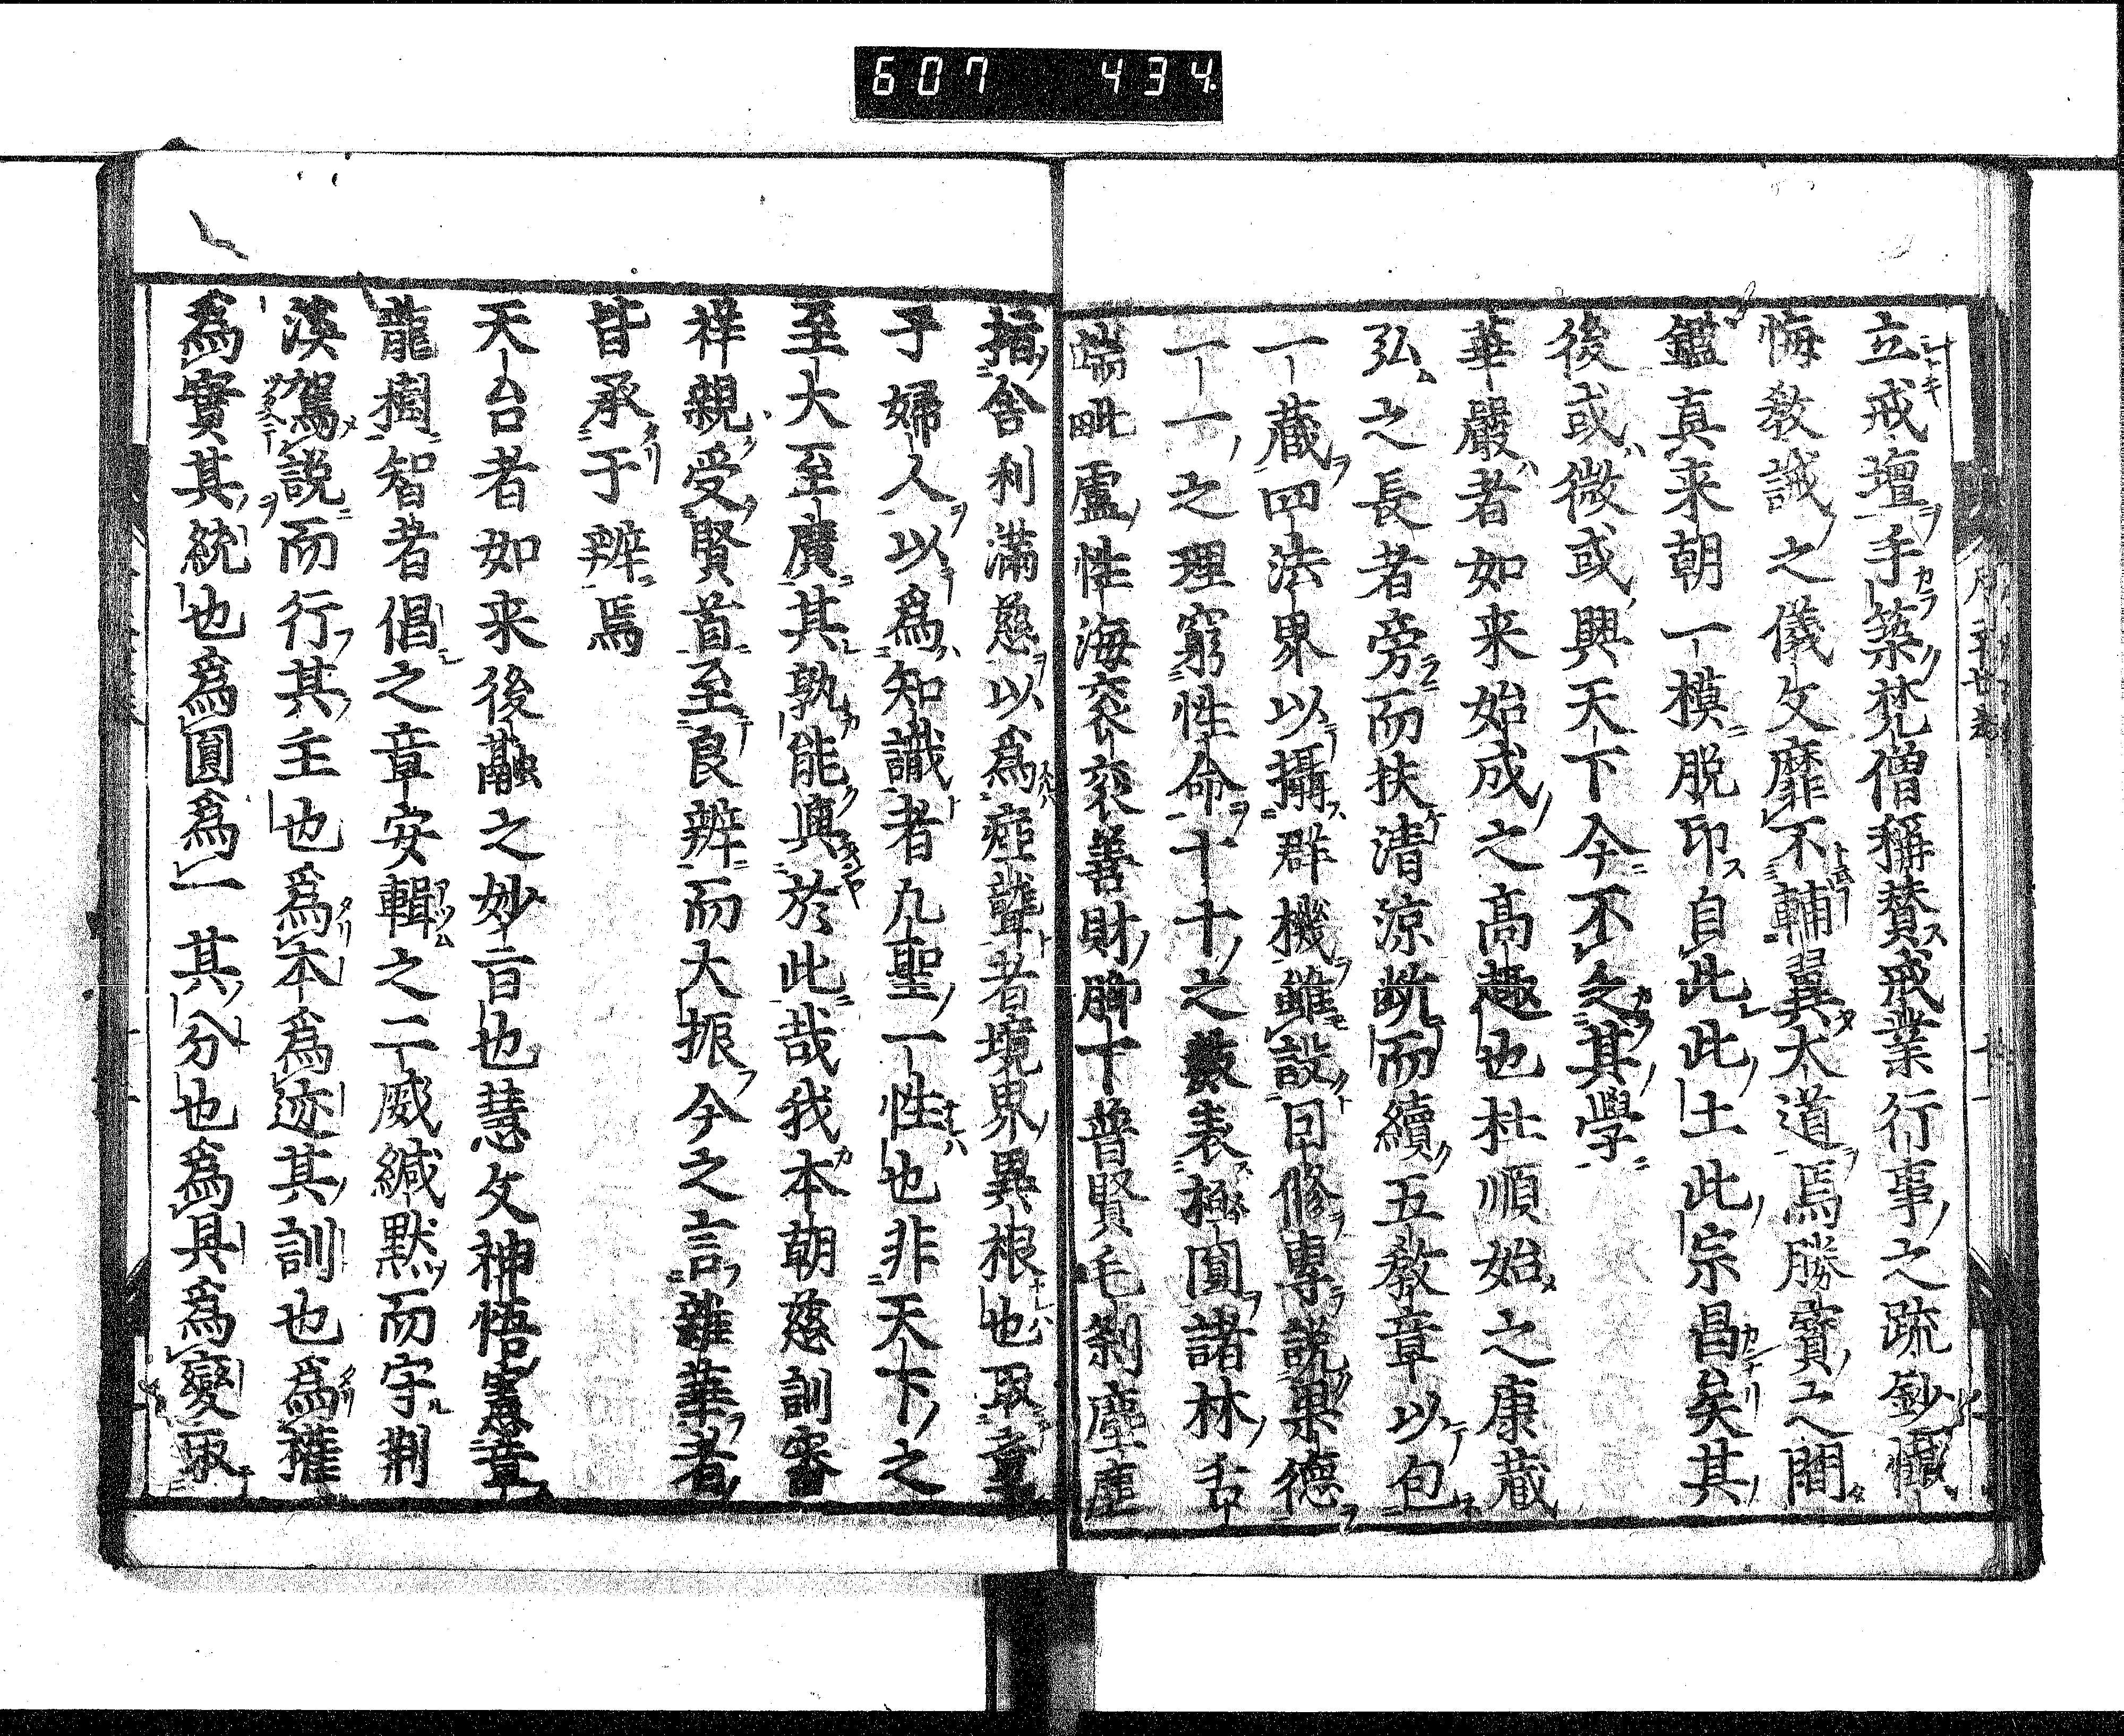 607 434
立戒壇手築梵僧稱賛戒業行事之疏鈔懺
悔教誡之儀文靡不輔翼大道焉勝寳之間
鑑真来朝一模脱印自此此土此宗昌矣其
後或微或興天下今不乏其學
華嚴者如来始成之高趣也杜順始之康藏
弘之長者旁而扶清涼斷而續五教章以包
一藏四法界以攝群機雖設曰修專說果德
一一之理窮性命十十之數表極圓諸林舌
端毗盧性海衮衮善財脚下普賢毛刹塵塵
揩舎利滿慈以爲瘂聾者境界異根也取童
子婦人以爲知識者九聖一性也非天下之
至大至廣其孰能與於此哉我本朝慈訓審
祥親受賢首至良辨而大振今之言雜華者
皆承于辨焉
天台者如来後融之妙旨也慧文神悟憲章
龍樹智者倡之章安輯之二威緘默而守荆
溪駕說而行其主也爲本爲迹其訓也爲權
爲實其統也爲圓爲一其分也爲具爲變取